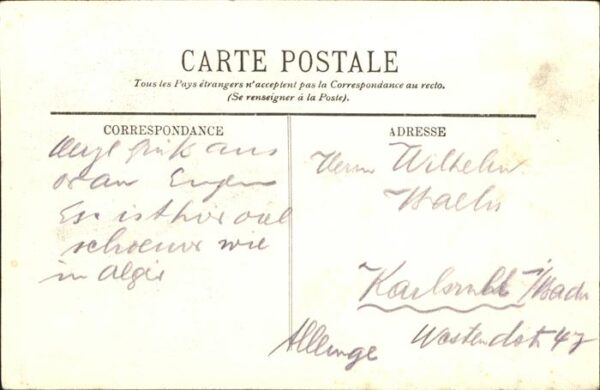 CARTE POSTALE
Tous les Pays étrangers n'acceptent pas la Correspondance au recto.
(Se renseigner à la Poste).
CORRESPONDANCE
aus
Oran Eugen
Es ist hier viel
schoener wie
in Algier
ADRESSE
Herrn Wilhelm
Karlsruhe
Westendstr 47